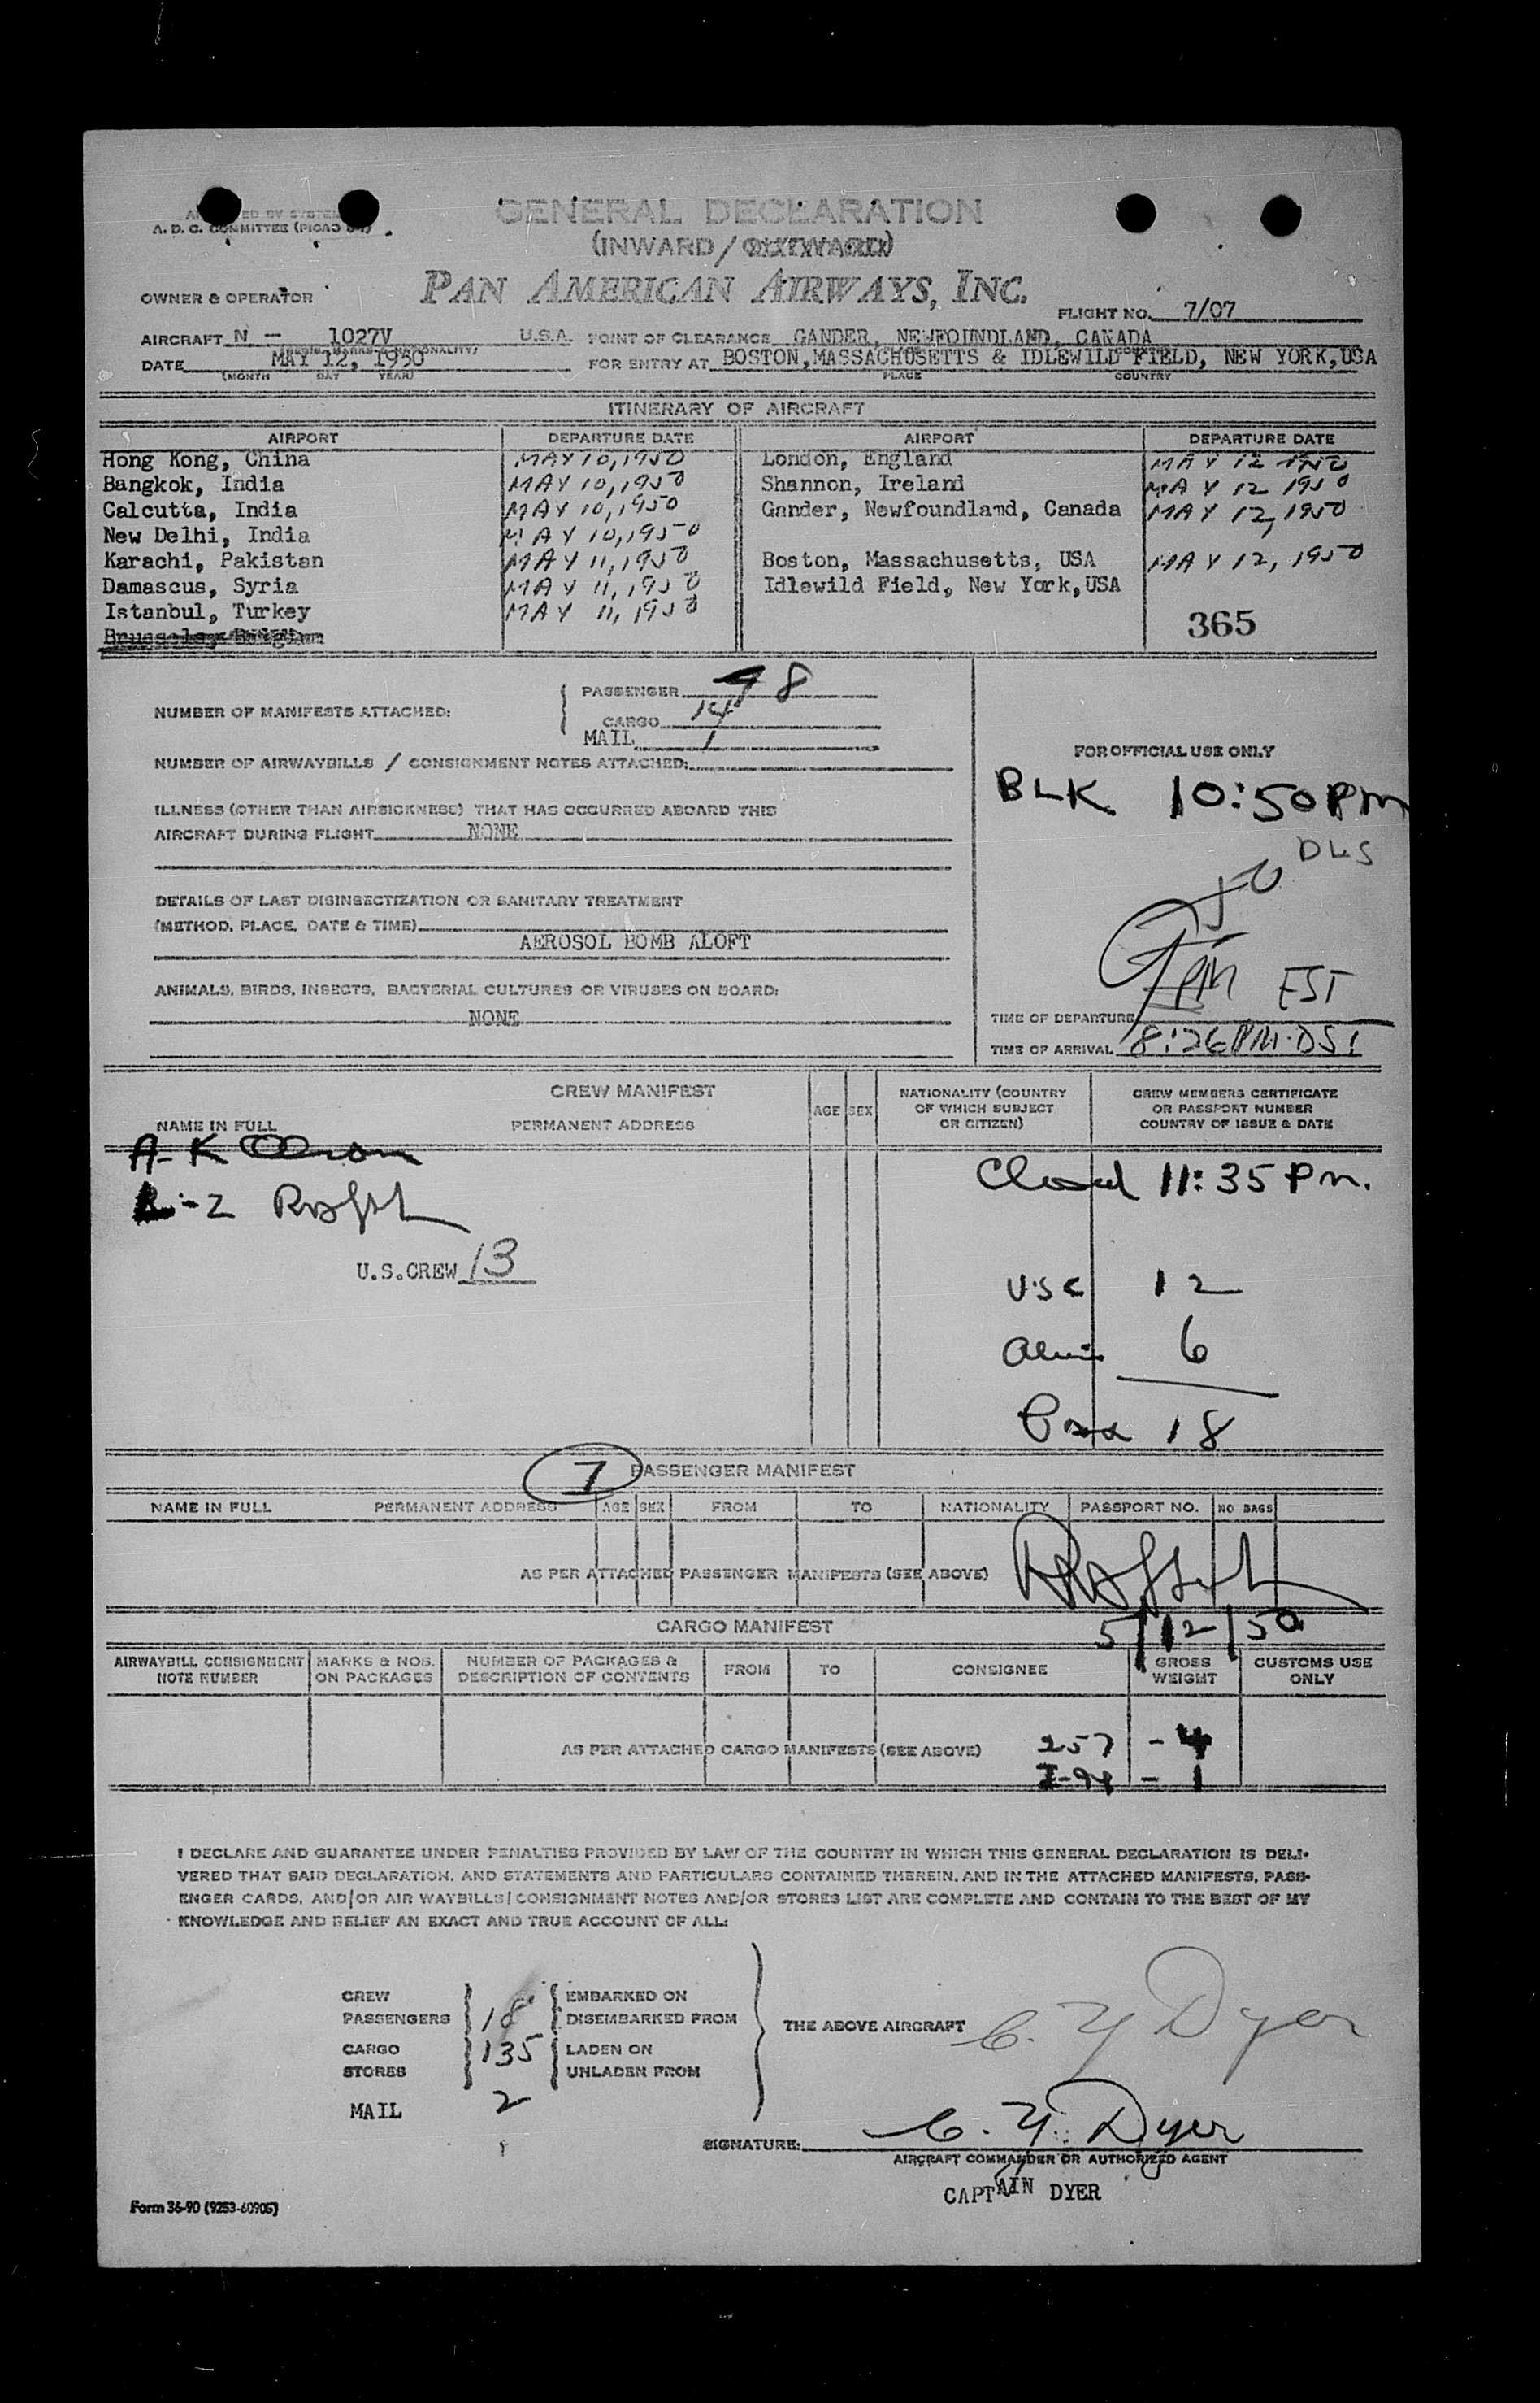 GENERAL DECLARATION
A. D. C. COMMITTEE
(INWARD / OUTWARD)
PAN AMERICAN AIRWAYS, INC.
OWNER & OPERATOR
FLIGHT NO. 7/07
AIRCRAFT N - 1027V U.S.A. POINT OF CLEARANCE GANDER, NEWFOUNDLAND, CANADA
DATE MAY 12, 1950 FOR ENTRY AT BOSTON, MASSACHUSETTS & IDLEWILD FIELD, NEW YORK, USA
(MONTH DAY YEAR) PLACE COUNTRY
ITINERARY OF AIRCRAFT
AIRPORT DEPARTURE DATE AIRPORT DEPARTURE DATE
Hong Kong, China MAY 10, 1950 London, England MAY 12 1950
Bangkok, India MAY 10, 1950 Shannon, Ireland MAY 12 1950
Calcutta, India MAY 10, 1950 Gander, Newfoundland, Canada MAY 12, 1950
New Delhi, India MAY 10, 1950
Karachi, Pakistan MAY 11, 1950 Boston, Massachusetts, USA MAY 12, 1950
Damascus, Syria MAY 11, 1950 Idlewild Field, New York, USA
Istanbul, Turkey MAY 11, 1950
Brussels, Belgium 365
NUMBER OF MANIFESTS ATTACHED:
PASSENGER 8
CARGO 14
MAIL 1
NUMBER OF AIRWAYBILLS / CONSIGNMENT NOTES ATTACHED:
FOR OFFICIAL USE ONLY
BLK 10:50 PM
DLS
ILLNESS (OTHER THAN AIRSICKNESS) THAT HAS OCCURRED ABOARD THIS
AIRCRAFT DURING FLIGHT NONE
DETAILS OF LAST DISINSECTIZATION OR SANITARY TREATMENT
(METHOD, PLACE, DATE & TIME)
AEROSOL BOMB ALOFT
ANIMALS, BIRDS, INSECTS, BACTERIAL CULTURES OR VIRUSES ON BOARD:
NONE
PM EST
TIME OF DEPARTURE
TIME OF ARRIVAL 8:26 PM. DST
CREW MANIFEST
NAME IN FULL PERMANENT ADDRESS AGE SEX
NATIONALITY (COUNTRY OF WHICH SUBJECT OR CITIZEN)
CREW MEMBERS CERTIFICATE OR PASSPORT NUMBER COUNTRY OF ISSUE & DATE
A-K Olson
Closed 11:35 PM.
U.S.CREW 13
USC 12
Alien 6
Pax 18
7
PASSENGER MANIFEST
NAME IN FULL PERMANENT ADDRESS AGE SEX FROM TO NATIONALITY PASSPORT NO. NO BAGS
AS PER ATTACHED PASSENGER MANIFESTS (SEE ABOVE)
5/12/50
CARGO MANIFEST
AIRWAYBILL CONSIGNMENT NOTE NUMBER
MARKS & NOS. ON PACKAGES
NUMBER OF PACKAGES & DESCRIPTION OF CONTENTS
FROM TO CONSIGNEE
GROSS WEIGHT
CUSTOMS USE ONLY
AS PER ATTACHED CARGO MANIFESTS (SEE ABOVE)
257 - 4
I-94 - 1
I DECLARE AND GUARANTEE UNDER PENALTIES PROVIDED BY LAW OF THE COUNTRY IN WHICH THIS GENERAL DECLARATION IS DELI-
VERED THAT SAID DECLARATION, AND STATEMENTS AND PARTICULARS CONTAINED THEREIN, AND IN THE ATTACHED MANIFESTS, PASS-
ENGER CARDS, AND/OR AIR WAYBILLS / CONSIGNMENT NOTES AND/OR STORES LIST ARE COMPLETE AND CONTAIN TO THE BEST OF MY
KNOWLEDGE AND BELIEF AN EXACT AND TRUE ACCOUNT OF ALL:
CREW EMBARKED ON
PASSENGERS 18 DISEMBARKED FROM
THE ABOVE AIRCRAFT C. Y Dyer
CARGO 135 LADEN ON
STORES UNLADEN FROM
MAIL 2
SIGNATURE: C. Y. Dyer
AIRCRAFT COMMANDER OR AUTHORIZED AGENT
CAPTAIN DYER
Form 36-90 (9253-60905)